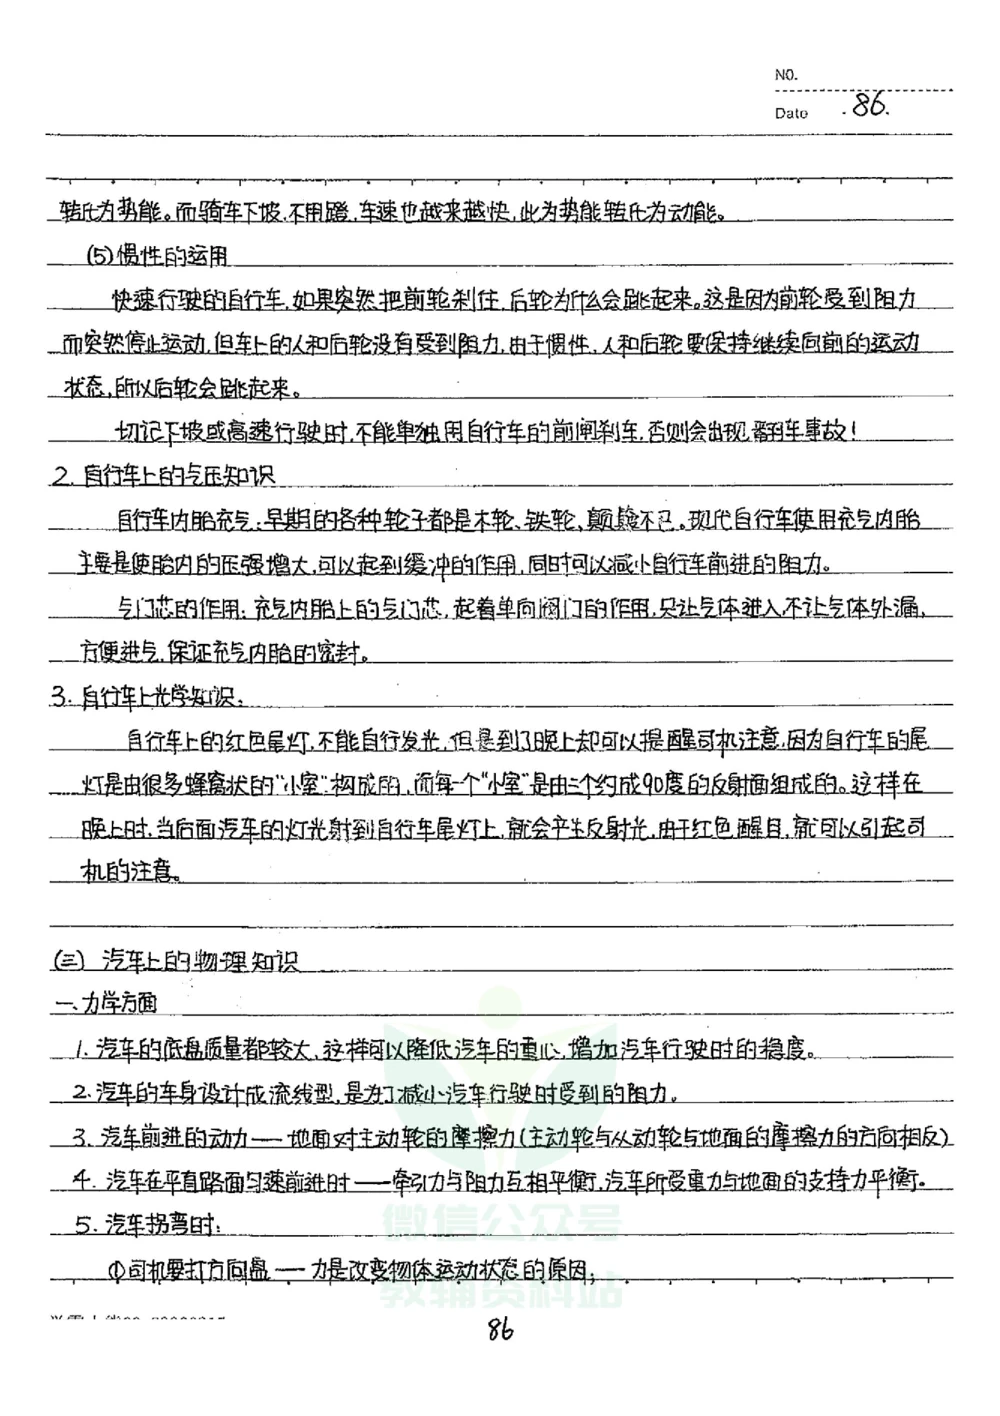 NO.
Date .86.
转化为势能。而骑车下坡,不用蹬,车速也越来越快,此为势能转化为动能。
(5)惯性的运用
快速行驶的自行车,如果突然把前轮刹住,后轮为什么会跳起来。这是因为前轮受到阻力
而突然停止运动,但车上的人和后轮没有受到阻力,由于惯性,人和后轮要保持继续向前的运动
状态,所以后轮会跳起来。
切记下坡或高速行驶时,不能单独用自行车的前闸刹车,否则会出现翻车事故!
2. 自行车上的气压知识
自行车内胎充气:早期的各种轮子都是木轮、铁轮、颠簸不已。现代自行车使用充气内胎
主要是使胎内的压强增大,可以起到缓冲的作用,同时可以减小自行车前进的阻力。
气门芯的作用:充气内胎上的气门芯,起着单向阀门的作用,只让气体进入不让气体外漏,
方便进气,保证充气内胎的密封。
3. 自行车上光学知识:
自行车上的红色尾灯,不能自行发光,但是到了晚上却可以提醒司机注意,因为自行车的尾
灯是由很多蜂窝状的“小室”构成的,而每一个“小室”是由三个约成90度的反射面组成的。这样在
晚上时,当后面汽车的灯光射到自行车尾灯上,就会产生反射光,由于红色醒目,就可以引起司
机的注意。
(三) 汽车上的物理知识
一、力学方面
1. 汽车的底盘质量都较大,这样可以降低汽车的重心,增加汽车行驶时的稳度。
2. 汽车的车身设计成流线型,是为了减小汽车行驶时受到的阻力。
3. 汽车前进的动力——地面对主动轮的摩擦力(主动轮与从动轮与地面的摩擦力的方向相反)
4. 汽车在平直路面匀速前进时——牵引力与阻力互相平衡,汽车所受重力与地面的支持力平衡。
5. 汽车拐弯时:
①司机要打方向盘——力是改变物体运动状态的原因;
微信公众号
教辅资料站
86